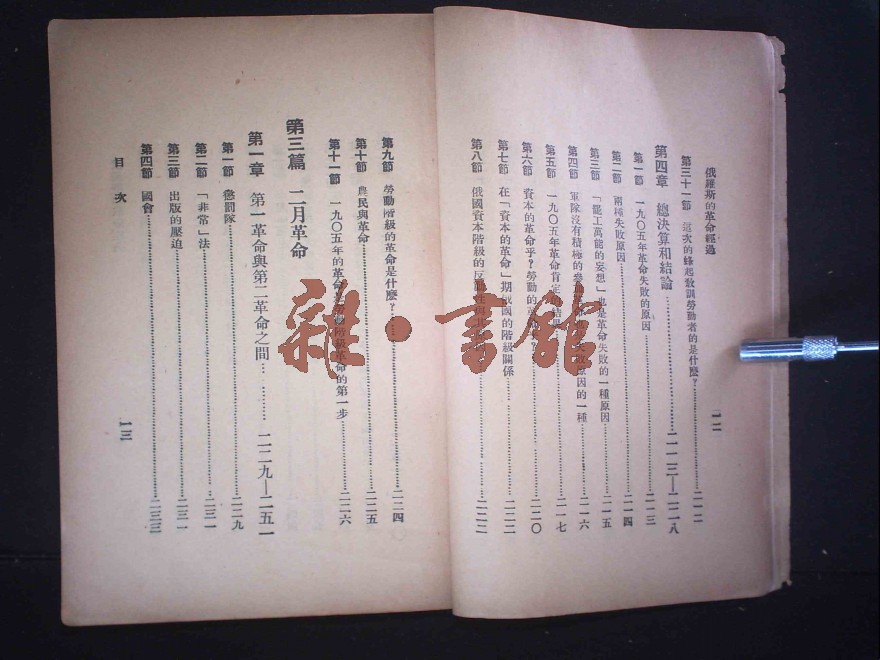 俄羅斯的革命經過
一二
第三十一節 這次的蜂起敎訓勞動者的是什麼？……二一二
第四章 總決算和結論……二一三—二二八
第一節 一九〇五年革命失敗的原因……二一三
第二節 兩種失敗原因……二一四
第三節 「罷工萬能的妄想」也是革命失敗的一種原因……二一五
第四節 軍隊沒有積極的參 失敗原因的一種……二一六
第五節 一九〇五年革命肯定的結果……二一七
第六節 資本的革命乎？勞動的革 ……二二〇
第七節 在「資本的革命」期俄國的階級關係……二二二
第八節 俄國資本階級的反動性與 ……二二三
第九節 勞動階級的革命是什麼？……二二四
第十節 農民與革命……二二五
第十一節 一九〇五年的革命 階級革命的第一步……二二六
第三篇 二月革命
第一章 第一革命與第二革命之間……二二九—二五一
第一節 懲罰隊……二二九
第二節 「非常」法……二三一
第三節 出版的壓迫……二三一
第四節 國會……二三三
目次
一三
雜·書館